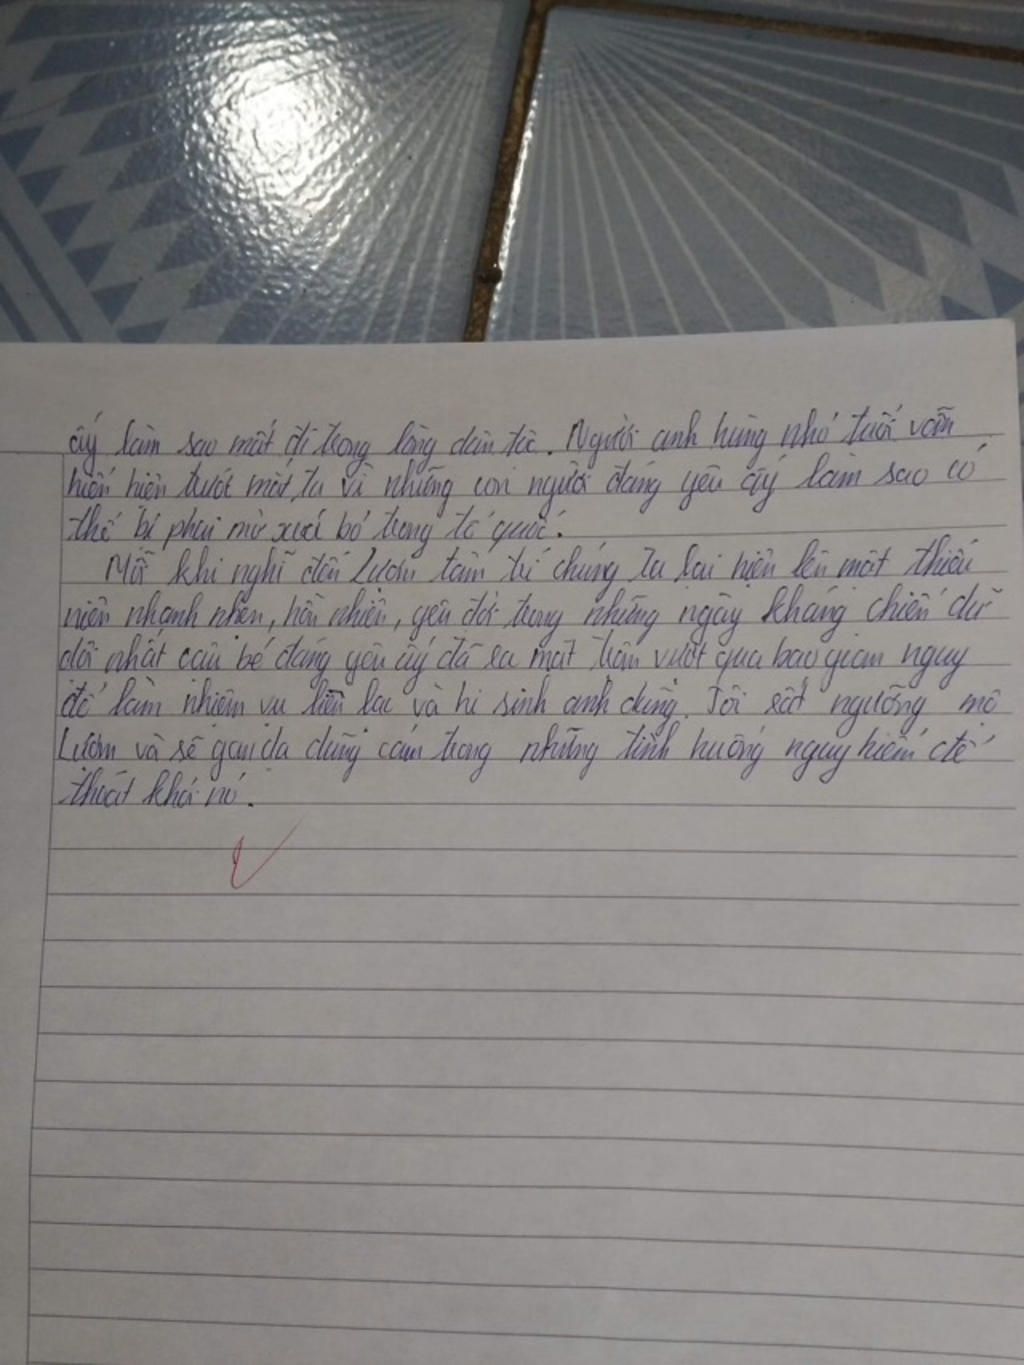 ấy làm sao mất đi trong lòng dân tộc. Người anh hùng nhỏ tuổi vẫn
hiển hiện trước mắt ta vì những con người đáng yêu ấy làm sao có
thể bị phai mờ xoá bỏ trong tổ quốc.
Mỗi khi nghĩ đến Lượm tâm trí chúng ta lại hiện lên một thiếu
niên nhanh nhẹn, hồn nhiên, yêu đời trong những ngày kháng chiến dữ
dội nhất cậu bé đáng yêu ấy đã ra mặt trận vượt qua bao gian nguy
để làm nhiệm vụ liên lạc và hi sinh anh dũng. Tôi rất ngưỡng mộ
Lượm và sẽ gan dạ dũng cảm trong những tình huống nguy hiểm để
thoát khỏi nó.